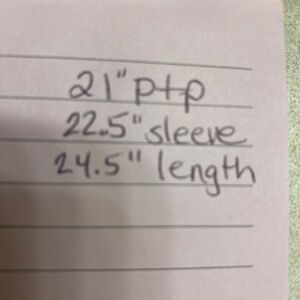 21" ptp
22.5" sleeve
24.5" length